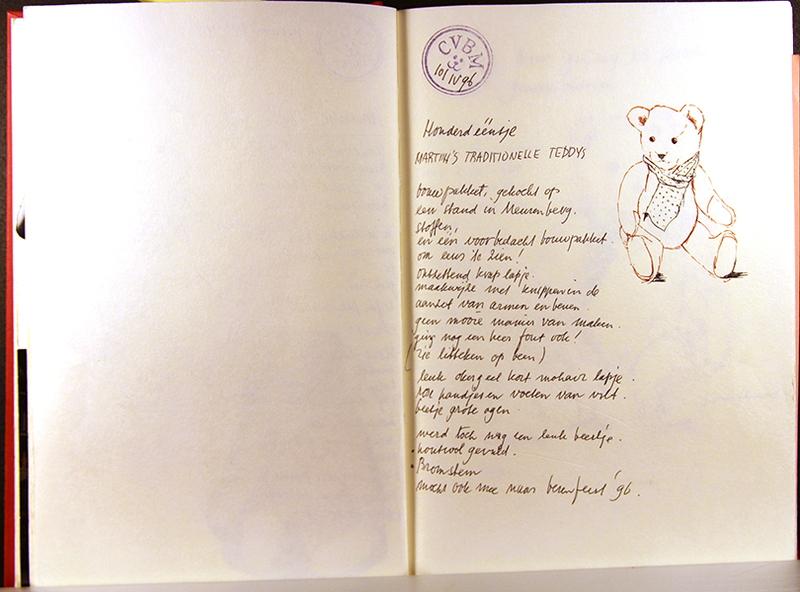 CVBM
10/IV 96
Honderd ééntje
MARTIN'S TRADITIONELLE TEDDYS
bouwpakket, gekocht op
een stand in Neurenberg.
stoffen,
en één voorbedacht bouwpakket.
om eens te zien!
ontzettend krap lapje.
maakwijze met knippen in de
aanzet van armen en benen.
geen mooie manier van maken.
ging nog een keer fout ook!
(zie litteken op been)
leuk okergeel kort mohair lapje.
handjes en voeten van vilt.
beetje grote ogen.
werd toch nog een leuk beertje.
houtwol gevuld.
Bromstem
mocht ook mee naar berenfeest '96.